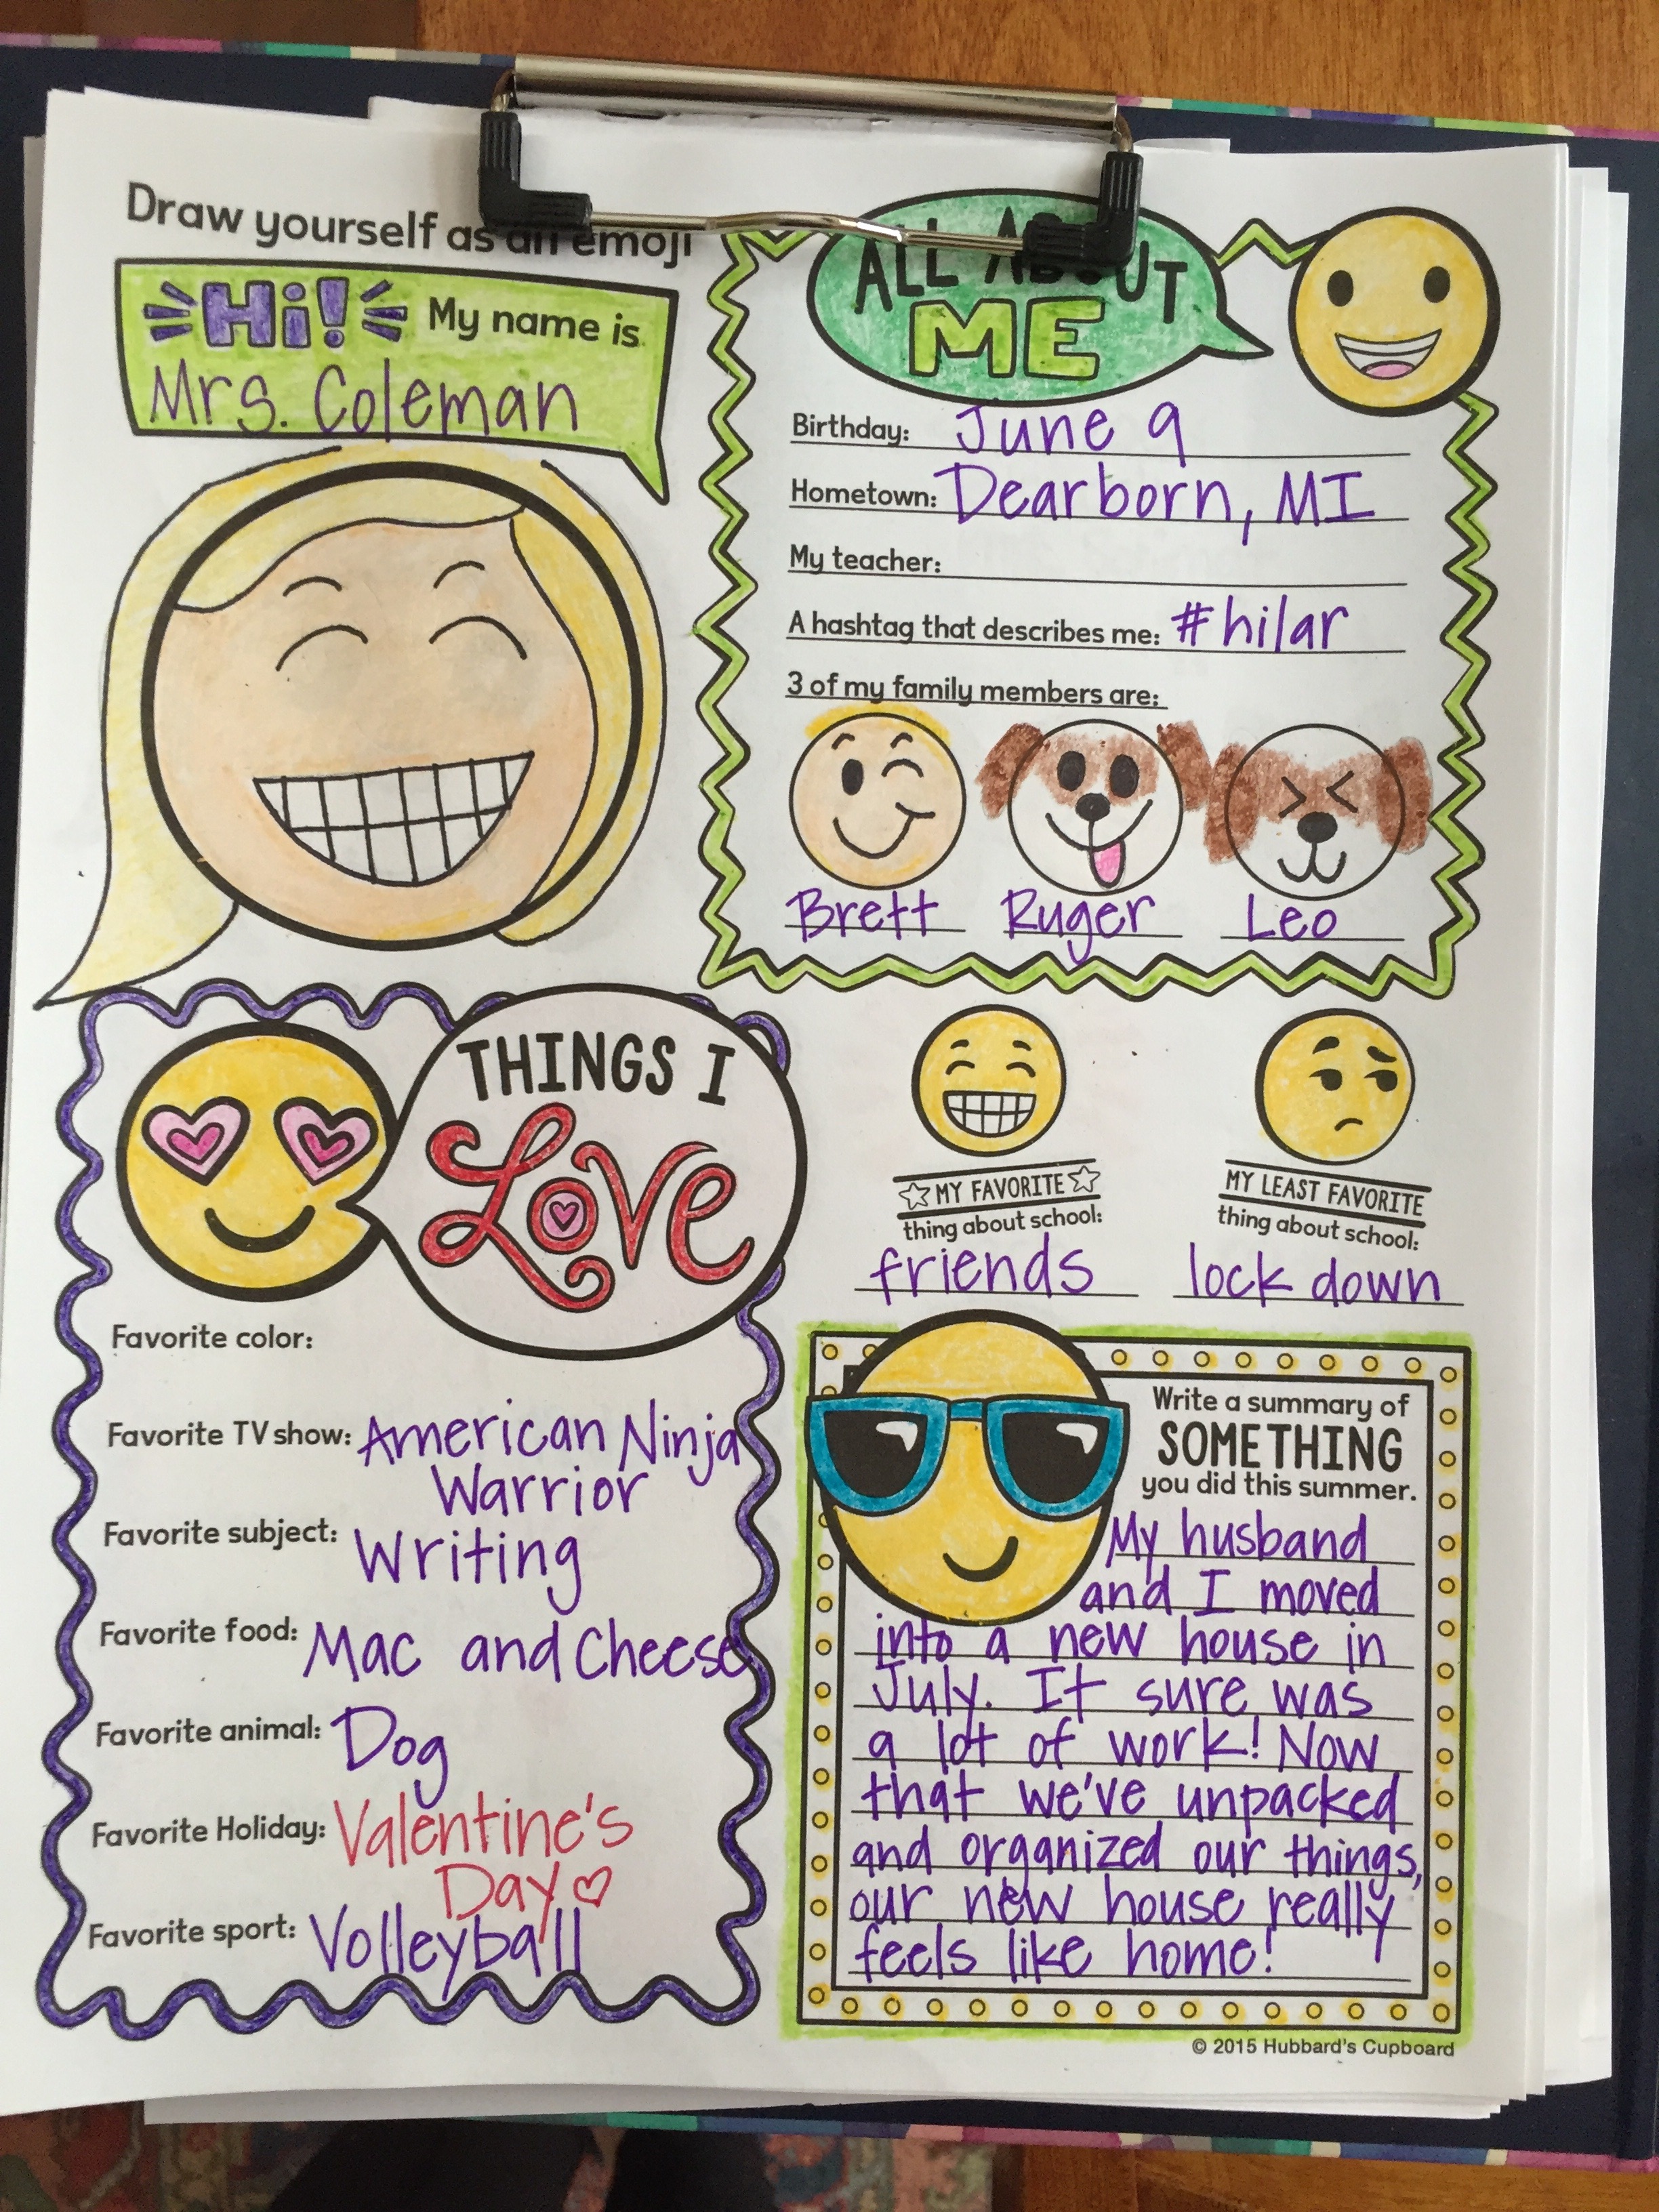 Draw yourself as an emoji
Hi! My name is
Mrs. Coleman
ALL ABOUT
ME
Birthday: June 9
Hometown: Dearborn, MI
My teacher:
A hashtag that describes me: #hilar
3 of my family members are:
Brett Ruger Leo
THINGS I
LOVE
Favorite color:
Favorite TV show: American Ninja
Warrior
Favorite subject: Writing
Favorite food: Mac and Cheese
Favorite animal: Dog
Favorite Holiday: Valentine's
Day
Favorite sport: Volleyball
MY FAVORITE
thing about school:
friends
MY LEAST FAVORITE
thing about school:
lock down
Write a summary of
SOMETHING
you did this summer.
My husband
and I moved
into a new house in
July. It sure was
a lot of work! Now
that we've unpacked
and organized our things,
our new house really
feels like home!
© 2015 Hubbard's Cupboard